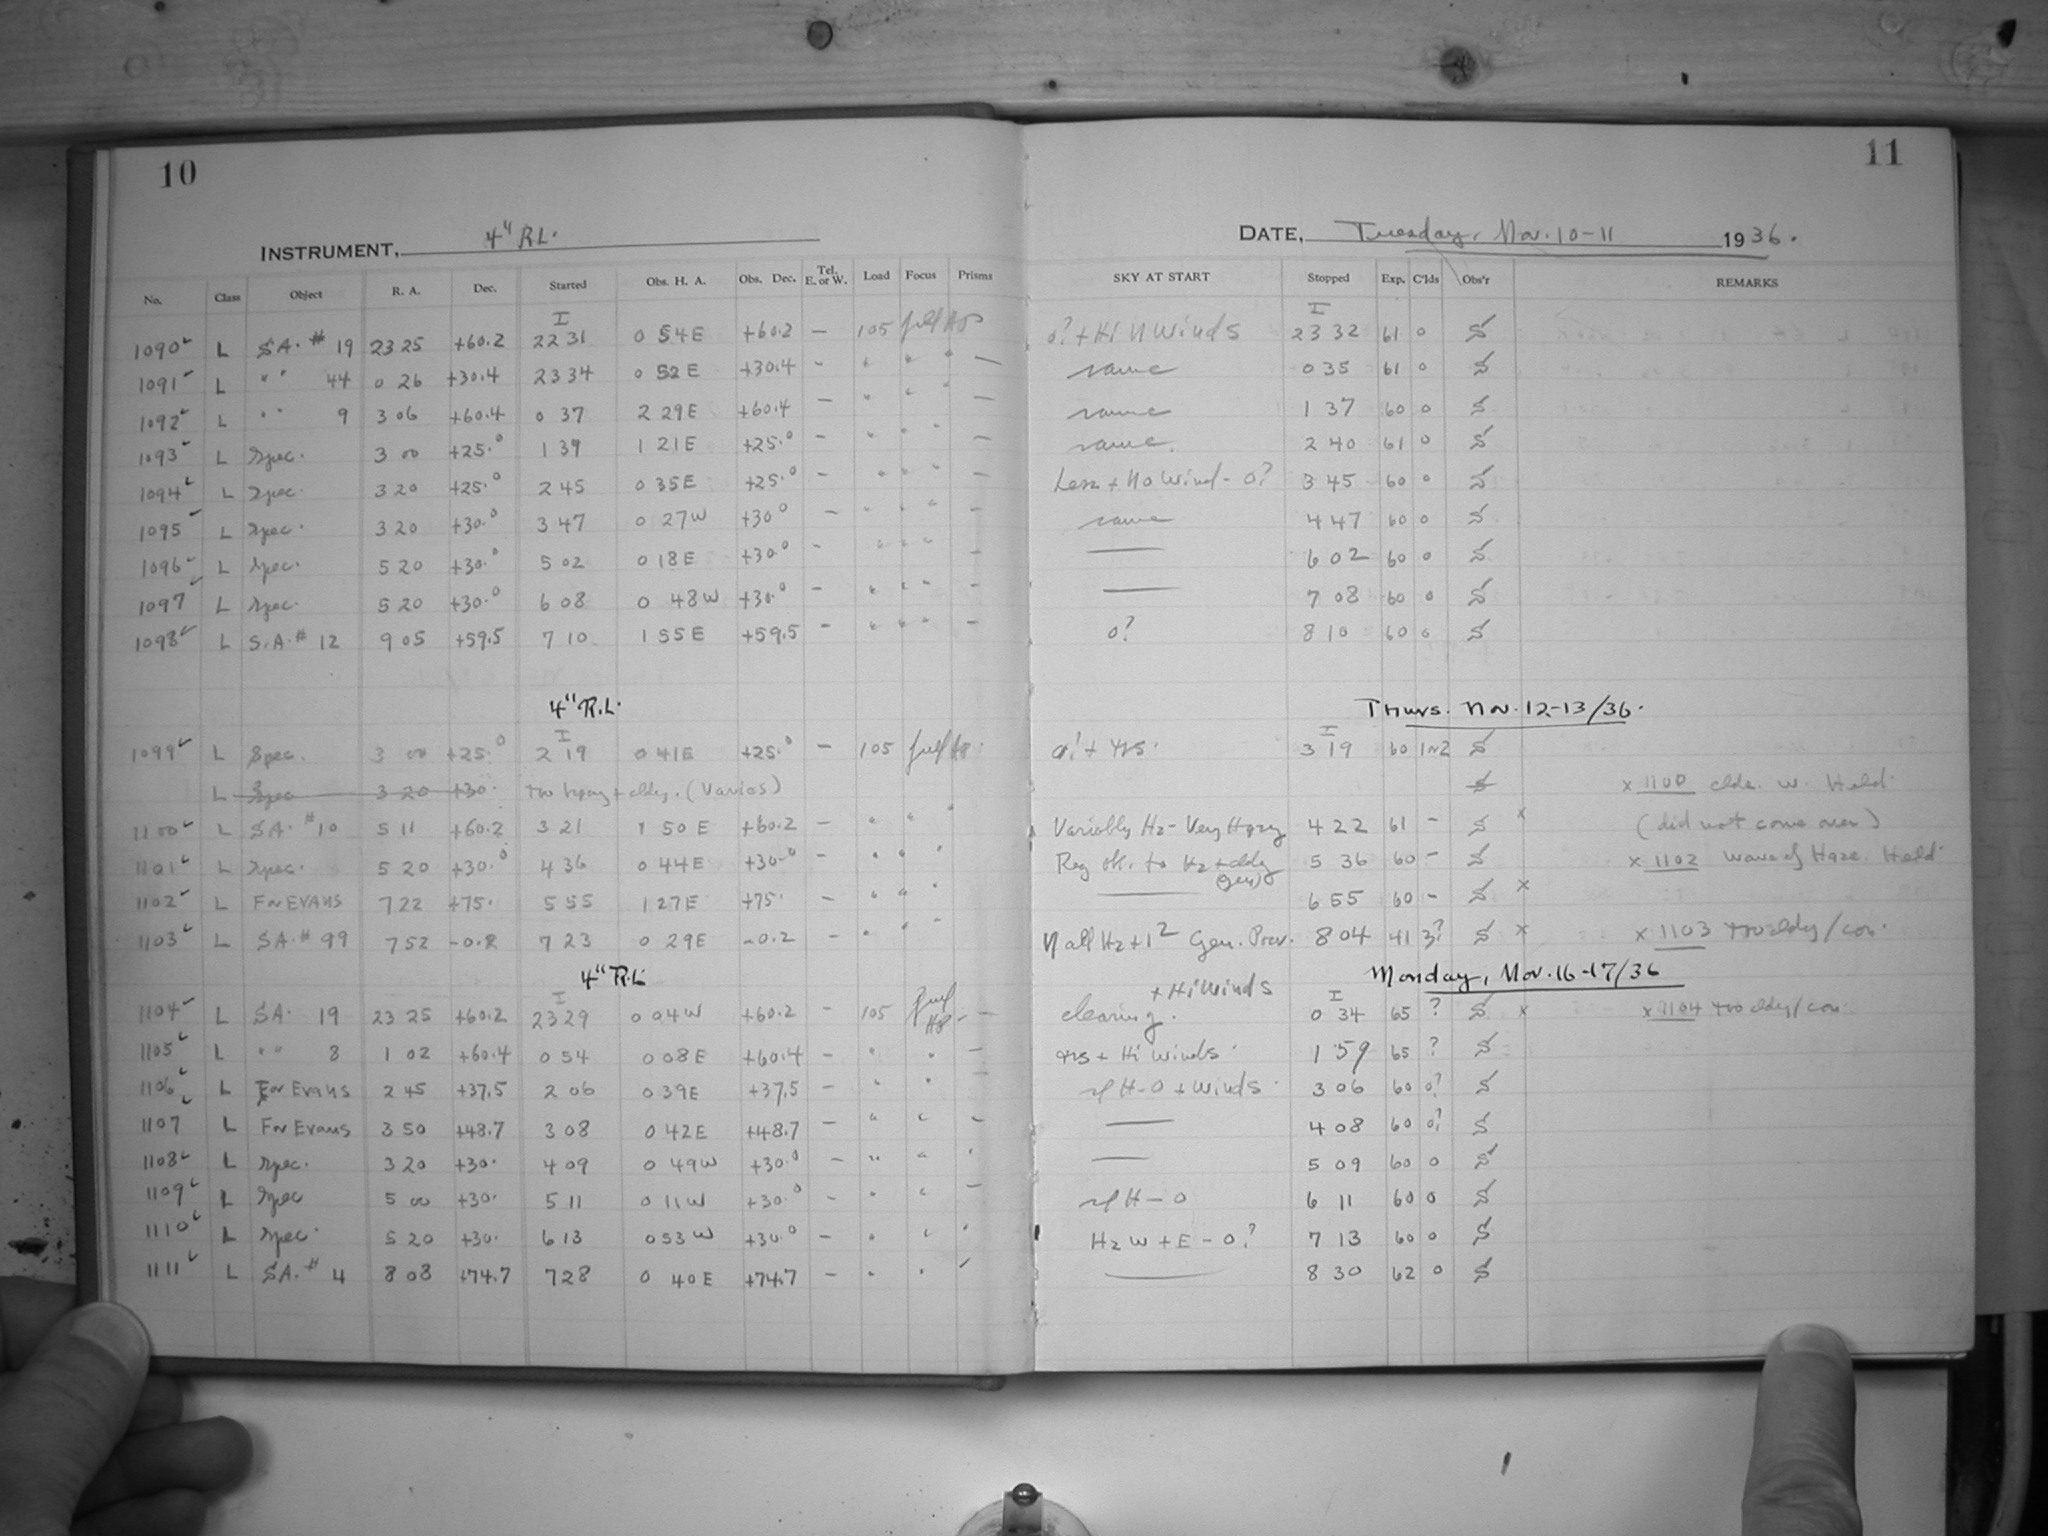 10
11
INSTRUMENT, 4" RL.
DATE, Tuesday, Nov. 10-11 1936.
No. Class Object R. A. Dec. Started Obs. H. A. Obs. Dec. Tel. E. or W. Load Focus Prisms SKY AT START Stopped Exp. C'lds Obs'r REMARKS
1090 L S.A. # 19 23 25 +60.2 22 31 0 54E +60.2 — 105 full + Hi N Winds 23 32 61 0 S
1091 L " " 44 0 26 +30.4 23 34 0 52E +30.4 — " " " — same 0 35 61 0 S
1092 L " " 9 3 06 +60.4 0 37 2 29E +60.4 — " " " — same 1 37 60 0 S
1093 L Spec. 3 00 +25.0 1 39 1 21E +25.0 — " " " — same. 2 40 61 0 S
1094 L Spec. 3 20 +25.0 2 45 0 35E +25.0 — " " " — Less + No Wind - 0? 3 45 60 0 S
1095 L Spec. 3 20 +30.0 3 47 0 27W +30.0 — " " " — same 4 47 60 0 S
1096 L Spec. 5 20 +30.0 5 02 0 18E +30.0 — " " " — — 6 02 60 0 S
1097 L Spec. 5 20 +30.0 6 08 0 48W +30.0 — " " " — — 7 08 60 0 S
1098 L S.A. # 12 9 05 +59.5 7 10 1 55E +59.5 — " " " — 0? 8 10 60 0 S
4" R.L. Thurs. Nov. 12-13/36.
1099 L Spec. 3 00 +25.0 2 19 0 41E +25.0 — 105 full 3 19 60 1n2 S
L Spec 3 20 +30. too hazy + cldy. (Varies) S x 1100 clds. w. Held
1100 L S.A. #10 5 11 +60.2 3 21 1 50E +60.2 — " " " Variably Hz - Very Hazy 4 22 61 — S x (did not come over)
1101 L Spec. 5 20 +30.0 4 36 0 44E +30.0 — " " " to Hz + cldy 5 36 60 — S x 1102 wave of Haze. Held
1102 L For EVANS 7 22 +75. 5 55 1 27E +75. — " " " — 6 55 60 — S x
1103 L S.A. # 99 7 52 -0.2 7 23 0 29E -0.2 — " " " all Hz + 12 Gen. Prev. 8 04 41 3? S x x 1103 too cldy/con.
4" R.L. Monday, Nov. 16-17/36
1104 L S.A. 19 23 25 +60.2 23 29 0 04W +60.2 — 105 full — clearing. + Hi Winds 0 34 65 ? S x x 1104 too cldy/con
1105 L " " 8 1 02 +60.4 0 54 0 08E +60.4 — " " — + Hi Winds. 1 59 65 ? S
1106 L For Evans 2 45 +37.5 2 06 0 39E +37.5 — " " — H-0 + Winds 3 06 60 0? S
1107 L For Evans 3 50 +48.7 3 08 0 42E +48.7 — " " — — 4 08 60 0? S
1108 L Spec. 3 20 +30. 4 09 0 49W +30.0 — " " ' — 5 09 60 0 S
1109 L Spec 5 00 +30. 5 11 0 11W +30.0 — " " — H-0 6 11 60 0 S
1110 L Spec. 5 20 +30. 6 13 0 53W +30.0 — " " ' Hz W + E - 0? 7 13 60 0 S
1111 L S.A. # 4 8 08 +74.7 7 28 0 40E +74.7 — " " ' — 8 30 62 0 S